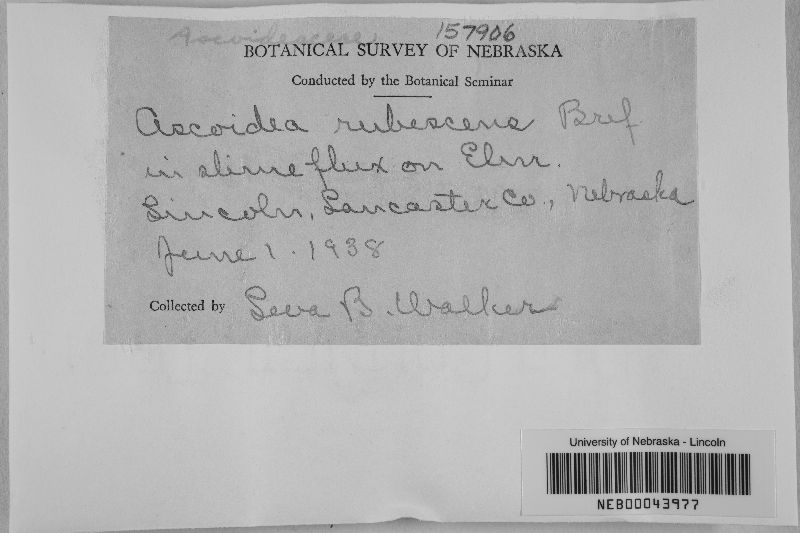 Ascoideaceae 157906
BOTANICAL SURVEY OF NEBRASKA
Conducted by the Botanical Seminar
Ascoidea rubescens Bref
in slime flux on Elm.
Lincoln, Lancaster Co., Nebraska
June 1. 1938
Collected by Leva B. Walker
University of Nebraska - Lincoln
NEB00043977